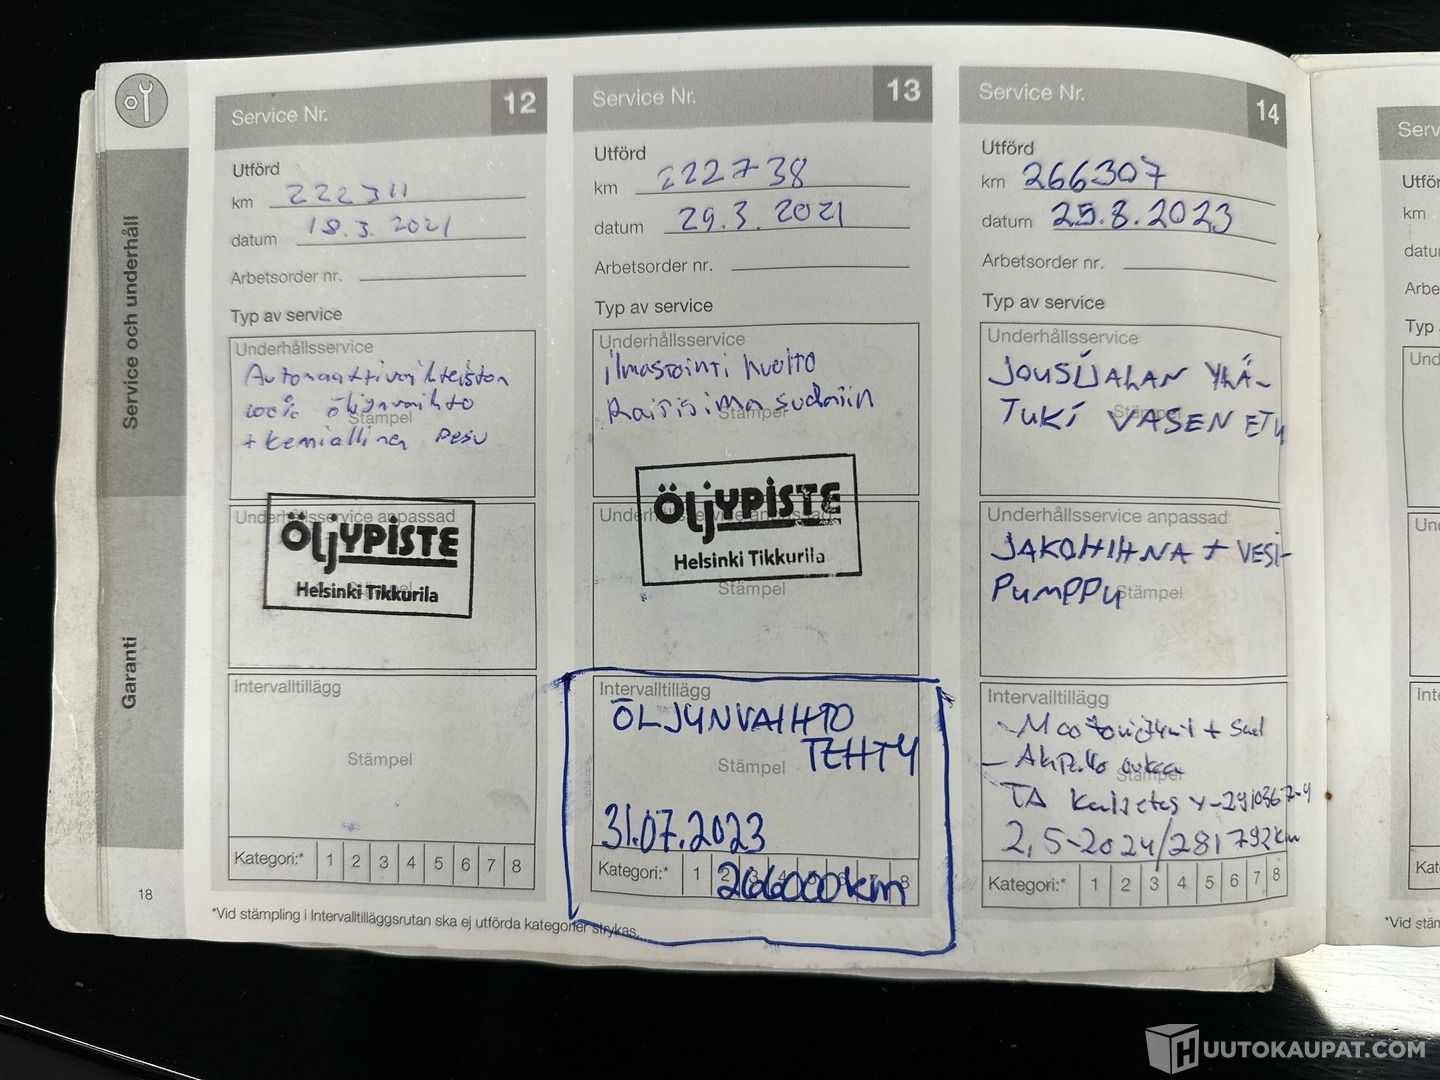 Service och underhåll
Garanti
18
Service Nr. 12
Utförd
km 222311
datum 18.3.2021
Arbetsorder nr.
Typ av service
Underhållsservice
Automaattivaihteiston
100% öljynvaihto
Stämpel
+ kemiallinen pesu
Underhållsservice anpassad
ÖLJYPISTE
Helsinki Tikkurila
Stämpel
Intervalltillägg
Stämpel
Kategori:* 1 2 3 4 5 6 7 8
*Vid stämpling i Intervalltilläggsrutan ska ej utförda kategorier strykas.
Service Nr. 13
Utförd
km 222738
datum 29.3.2021
Arbetsorder nr.
Typ av service
Underhållsservice
ilmastointi huolto
Raitisilmasuodatin
Stämpel
Underhållsservice anpassad
ÖLJYPISTE
Helsinki Tikkurila
Stämpel
Intervalltillägg
ÖLJYNVAIHTO
TEHTY
Stämpel
31.07.2023
Kategori:* 1 2 8
266000km
Service Nr. 14
Utförd
km 266307
datum 25.8.2023
Arbetsorder nr.
Typ av service
Underhållsservice
JOUSIJALAN YLÄ-
TUKI VASEN ETU
Stämpel
Underhållsservice anpassad
JAKOHIHNA + VESI-
PUMPPU
Stämpel
Intervalltillägg
- Moottoriöljyt + Suod
Stämpel
TA
2,5-2024/281792km
Kategori:* 1 2 3 4 5 6 7 8
Serv
Utför
km
datu
Arbe
Typ
Und
Un
Int
Kat
*Vid stän
HUUTOKAUPAT.COM